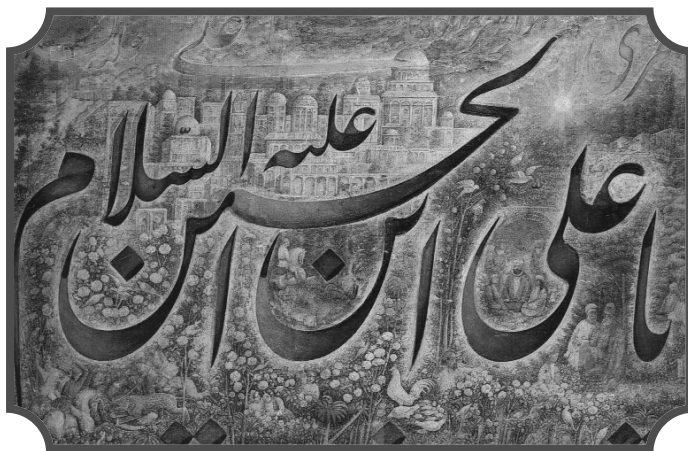 یا علی ابن الحسین علیه السلام